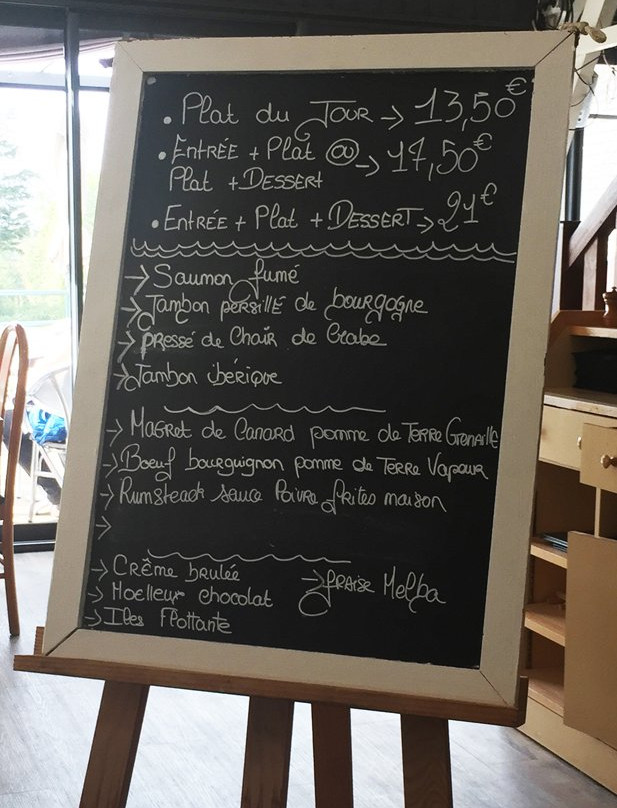 • Plat du Jour → 13,50€
• Entrée + Plat @ → 17,50€
Plat + Dessert
• Entrée + Plat + Dessert → 21€
→ Saumon fumé
→ Jambon persillé de bourgogne
→ pressé de Chair de Crabe
→ Jambon ibérique
→ Magret de Canard pomme de Terre Grenaille
→ Boeuf bourguignon pomme de Terre Vapeur
→ Rumsteack sauce Poivre frites maison
→
→ Crême brulée
→ fraise Melba
→ Moelleux chocolat
→ Iles Flottante